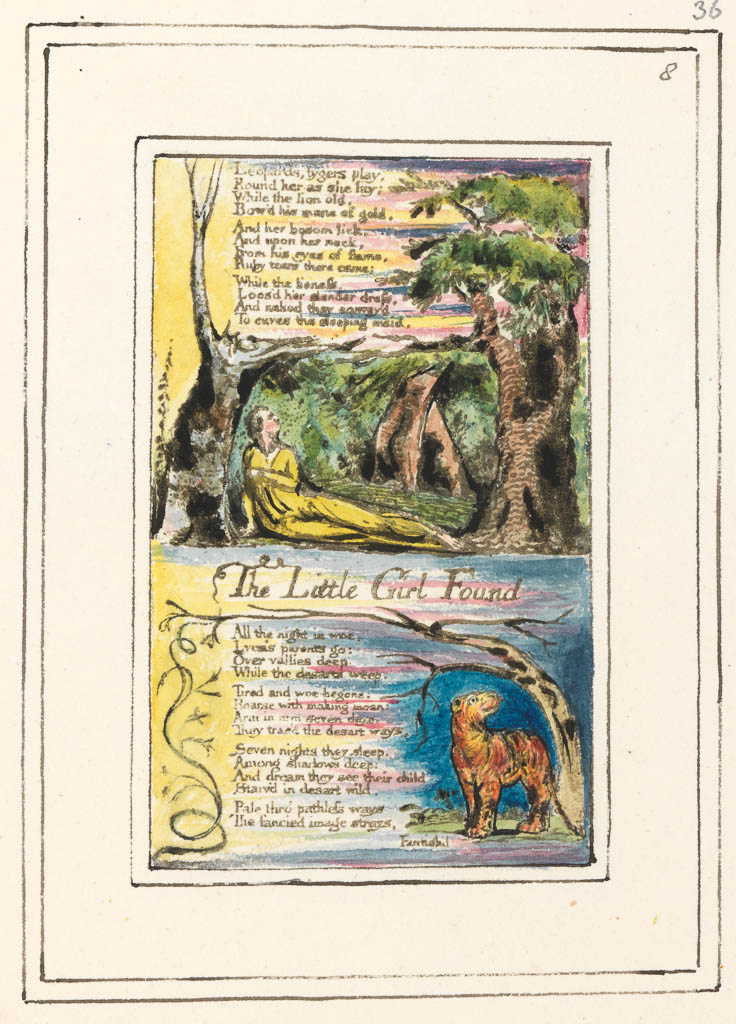 36
8
Leopards, tygers play,
Round her as she lay;
While the lion old,
Bow'd his mane of gold,
And her bosom lick,
And upon her neck,
From his eyes of flame,
Ruby tears there came;
While the lioness
Loos'd her slender dress,
And naked they convey'd
To caves the sleeping maid.
The Little Girl Found
All the night in woe,
Lyca's parents go:
Over vallies deep,
While the desarts weep.
Tired and woe-begone,
Hoarse with making moan:
Arm in arm seven days,
They trac'd the desart ways.
Seven nights they sleep,
Among shadows deep:
And dream they see their child
Starv'd in desart wild.
Pale thro' pathless ways
The fancied image strays,
Famish'd